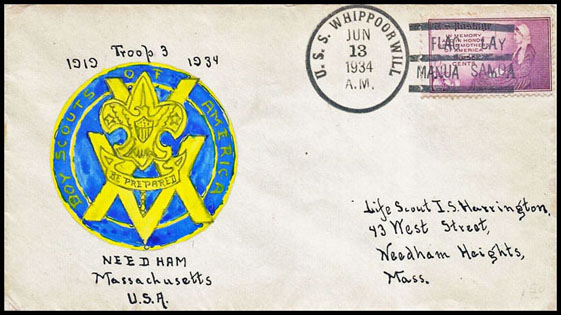 Troop 3
1919 1934
BOY SCOUTS OF AMERICA
BE PREPARED
NEEDHAM
Massachusetts
U.S.A.
U.S.S. WHIPPOORWILL
JUN
13
1934
A.M.
FLAG DAY
MANUA SAMOA
IN MEMORY
AND IN HONOR
OF THE MOTHERS
OF AMERICA
CENTS
Life Scout I.S. Harrington,
43 West Street,
Needham Heights,
Mass.